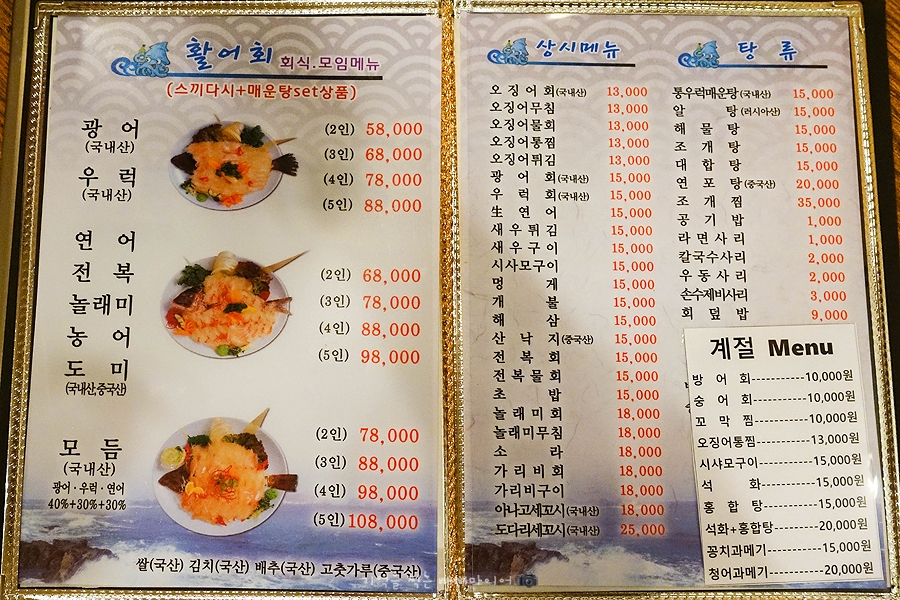 활어회 회식.모임메뉴
(스끼다시+매운탕set상품)
광 어
(국내산)
우 럭
(국내산)
(2인) 58,000
(3인) 68,000
(4인) 78,000
(5인) 88,000
연 어
전 복
놀래미
농 어
도 미
(국내산,중국산)
(2인) 68,000
(3인) 78,000
(4인) 88,000
(5인) 98,000
모 듬
(국내산)
광어·우럭·연어
40%+30%+30%
(2인) 78,000
(3인) 88,000
(4인) 98,000
(5인) 108,000
쌀(국산) 김치(국산) 배추(국산) 고춧가루(중국산)
상시메뉴
오징어회(국내산) 13,000
오징어무침 13,000
오징어물회 13,000
오징어통찜 13,000
오징어튀김 13,000
광 어 회(국내산) 15,000
우 럭 회(국내산) 15,000
生 연 어 15,000
새우튀김 15,000
새우구이 15,000
시사모구이 15,000
멍 게 15,000
개 불 15,000
해 삼 15,000
산 낙 지(중국산) 15,000
전 복 회 15,000
전복물회 15,000
초 밥 15,000
놀래미회 18,000
놀래미무침 18,000
소 라 18,000
가리비회 18,000
가리비구이 18,000
아나고세꼬시(국내산) 18,000
도다리세꼬시(국내산) 25,000
탕 류
통우럭매운탕(국내산) 15,000
알 탕(러시아산) 15,000
해 물 탕 15,000
조 개 탕 15,000
대 합 탕 15,000
연 포 탕(중국산) 20,000
조 개 찜 35,000
공 기 밥 1,000
라면사리 1,000
칼국수사리 2,000
우동사리 2,000
손수제비사리 3,000
회 덮 밥 9,000
계절 Menu
방 어 회-----------10,000원
숭 어 회-----------10,000원
꼬 막 찜-----------10,000원
오징어통찜-----------13,000원
시샤모구이-----------15,000원
석 화-----------15,000원
홍 합 탕-----------15,000원
석화+홍합탕---------20,000원
꽁치과메기-----------15,000원
청어과메기-----------20,000원